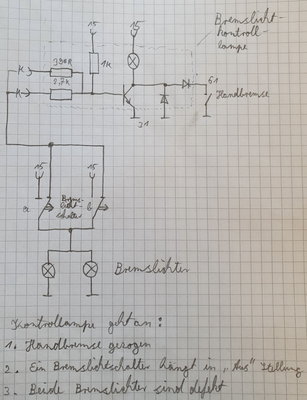 15
15
Bremslicht-
kontroll-
lampe
380R
1k
K
2,7k
K
61
Handbremse
31
15
15
Brems-
licht-
schalter
a
b
Bremslichter
Kontrollampe geht an:
1. Handbremse gezogen
2. Ein Bremslichtschalter hängt in „Aus" Stellung
3. Beide Bremslichter sind defekt